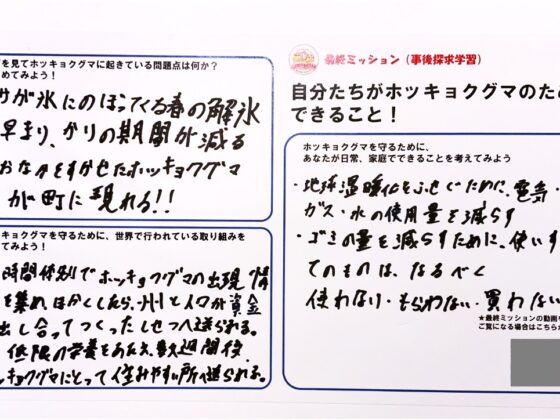 を見てホッキョクグマに起きている問題点は何か?
めてみよう!
サが氷にのぼってくる春の解氷
早まり、かりの期間が減る
おなかをすかせたホッキョクグマ
が町に現れる!!
キョクグマを守るために、世界で行われている取り組みを
てみよう!
時間体制でホッキョクグマの出現情
を集め、ほかくしたら、州と人口が資金
出し合ってつくったしせつへ送られる。
低限の栄養をあたえ、数週間後、
ッキョクグマにとって住みやすい所へ送られる。
最終ミッション(事後探求学習)
自分たちがホッキョクグマのため
できること!
ホッキョクグマを守るために、
あなたが日常、家庭でできることを考えてみよう
・地球温暖化をふせぐために、電気・
ガス・水の使用量を減らす
・ゴミの量を減らすために、使いす
てのものは、なるべく
使わない・もらわない・買わない
★最終ミッションの動画を
ご覧になる場合はこちらか